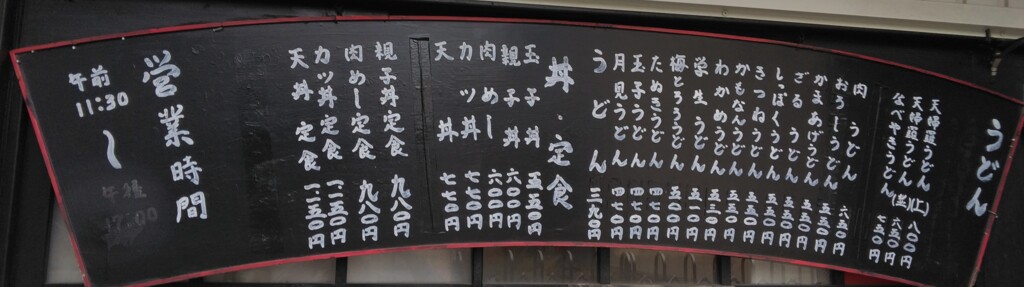 うどん
天婦羅うどん(上)八〇〇円
天婦羅うどん(並)六五〇円
なべやきうどん 七五〇円
肉うどん 六五〇円
おろしうどん 五五〇円
かまあげうどん 五五〇円
ざるうどん 五五〇円
しっぽくうどん 五五〇円
きつねうどん 五五〇円
かもなんうどん 五五〇円
わかめうどん 五五〇円
学生うどん 五〇〇円
梅とろろうどん 五〇〇円
たぬきうどん 四七〇円
玉子うどん 四七〇円
月見うどん 四七〇円
うどん 三九〇円
丼・定食
玉子丼 五五〇円
親子丼 六〇〇円
肉めし 六〇〇円
カツ丼 七七〇円
天丼 七七〇円
親子丼定食 九八〇円
肉めし定食 九八〇円
カツ丼定食 一一五〇円
天丼定食 一一五〇円
営業時間
午前
11:30
〜
午後